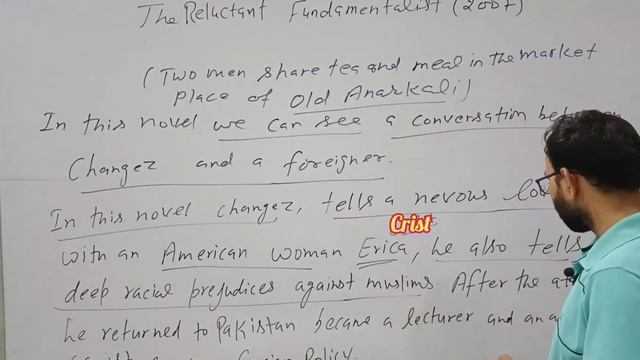 The Reluctant Fundamentalist (2007)
(Two men share tea and meal in the market
place of Old Anarkali)
In this novel we can see a conversation between
Changez and a foreigner.
In this novel changez, tells a nevous
Crist
with an American woman Erica, he also tells
deep racial prejudices against muslims. After the
he returned to Pakistan became a lecturer and an
Policy.